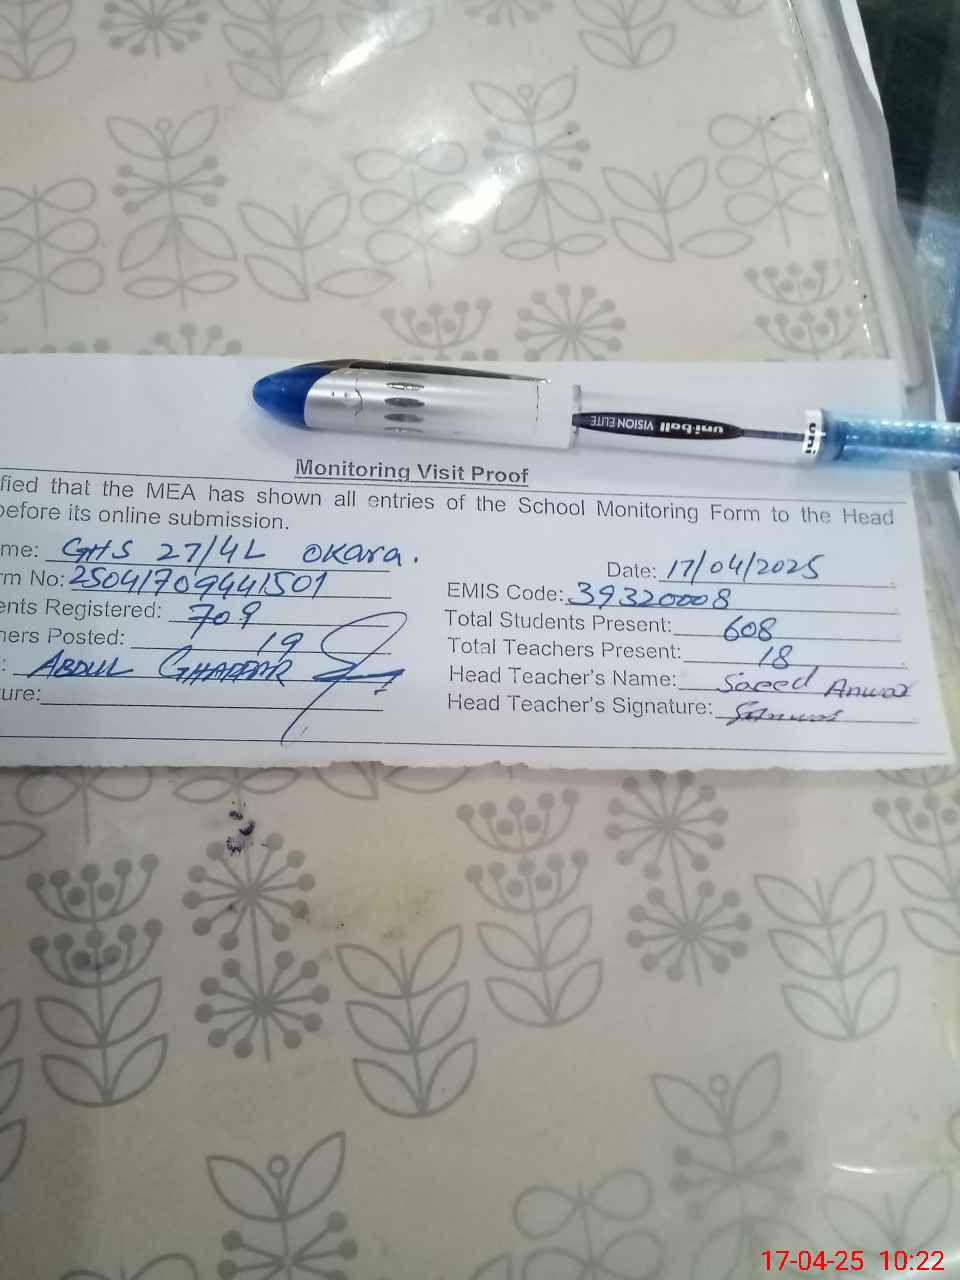 uni
uni-ball VISION ELITE
Monitoring Visit Proof
fied that the MEA has shown all entries of the School Monitoring Form to the Head
before its online submission.
me: GHS 27/4L OKara.
Date: 17/04/2025
rm No: 25041709441501
EMIS Code: 39320008
ents Registered: 709
Total Students Present: 608
hers Posted: 19
Total Teachers Present: 18
: ABDUL GHAFFAR
Head Teacher's Name: Saeed Anwar
ure:
Head Teacher's Signature:
17-04-25 10:22